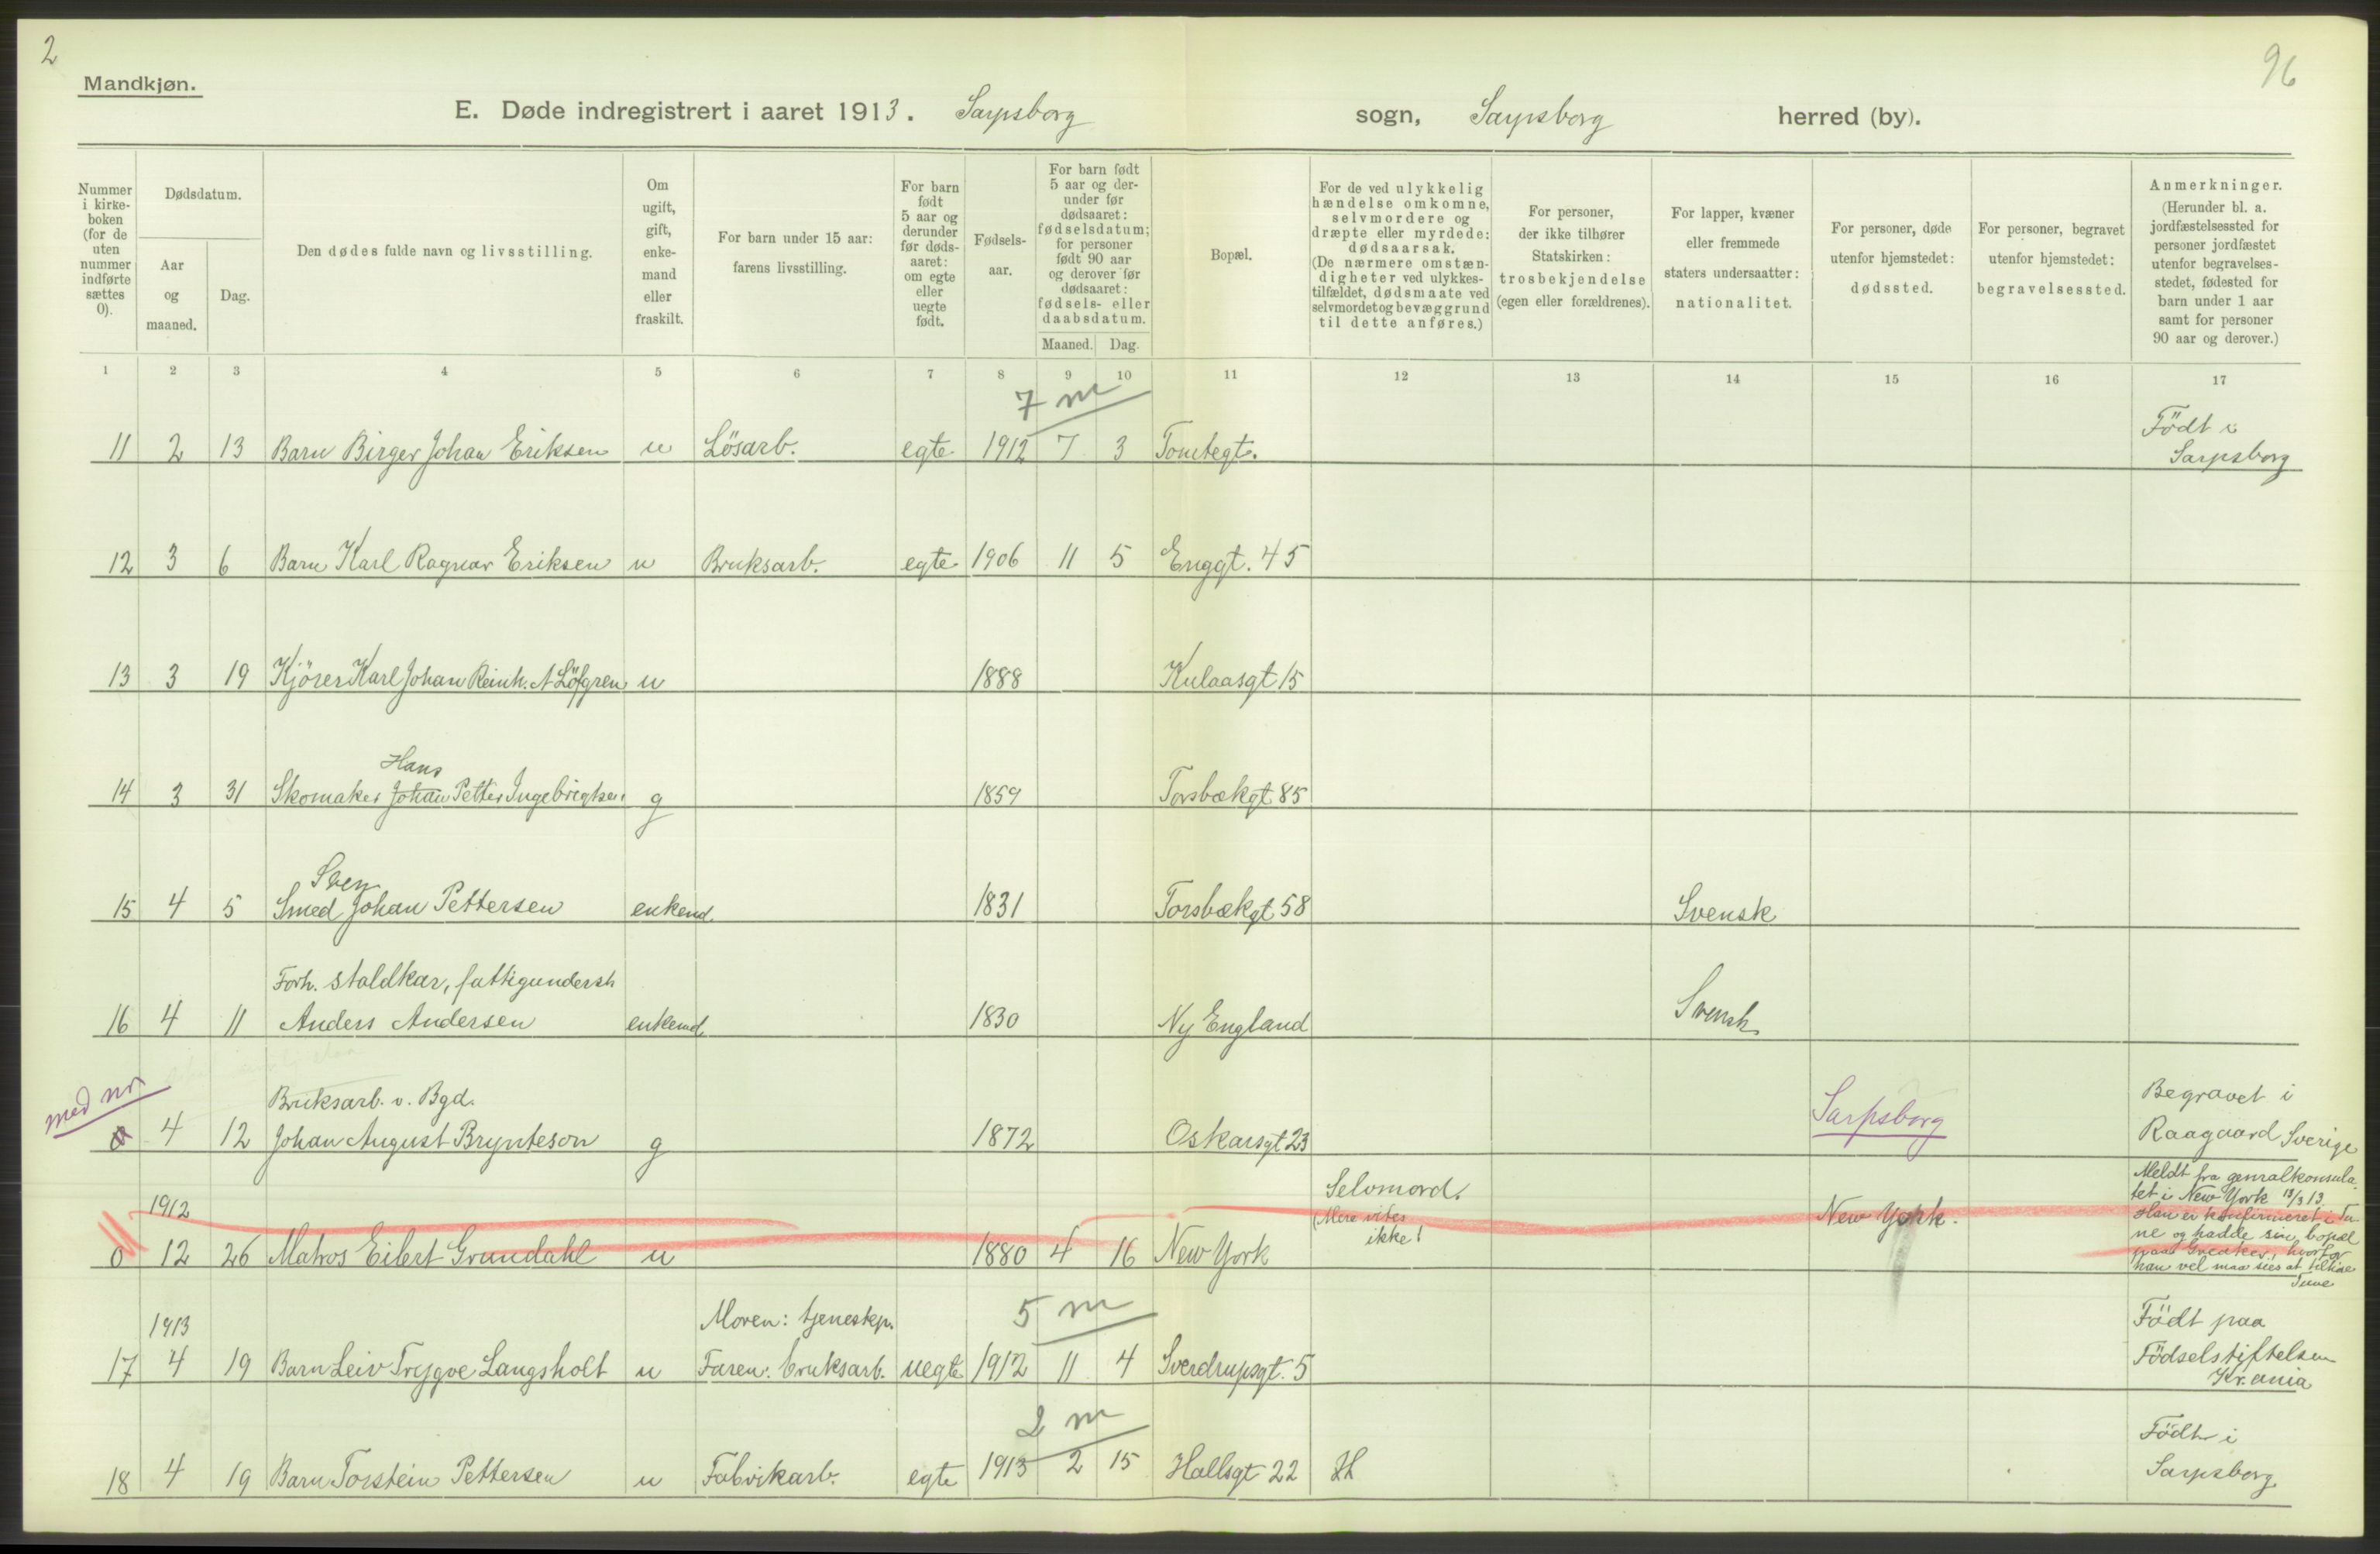 2
96
Mandkjøn.
E. Døde indregistrert i aaret 1913. Sarpsborg sogn, Sarpsborg herred (by).
Nummer i kirke-boken (for de uten nummer indførte sættes 0).
Dødsdatum.
Aar og maaned.
Dag.
Den dødes fulde navn og livsstilling.
Om ugift, gift, enke-mand eller fraskilt.
For barn under 15 aar: farens livsstilling.
For barn født 5 aar og derunder før døds-aaret: om egte eller uegte født.
Fødsels-aar.
For barn født 5 aar og der-under før dødsaaret: fødselsdatum; for personer født 90 aar og derover før dødsaaret: fødsels- eller daabsdatum.
Maaned. Dag.
Bopæl.
For de ved ulykkelig hændelse omkomne, selvmordere og dræpte eller myrdede: dødsaarsak. (De nærmere omstæn-digheter ved ulykkes-tilfældet, dødsmaate ved selvmordet og bevæggrund til dette anføres.)
For personer, der ikke tilhører Statskirken: trosbekjendelse (egen eller forældrenes).
For lapper, kvæner eller fremmede staters undersaatter: nationalitet.
For personer, døde utenfor hjemstedet: dødssted.
For personer, begravet utenfor hjemstedet: begravelsessted.
Anmerkninger. (Herunder bl. a. jordfæstelsessted for personer jordfæstet utenfor begravelses-stedet, fødested for barn under 1 aar samt for personer 90 aar og derover.)
1 2 3 4 5 6 7 8 9 10 11 12 13 14 15 16 17
7 m
11 2 13 Barn Birger Johan Eriksen u Lösarb. egte 1912 7 3 Tomtegt. Födt i Sarpsborg
12 3 6 Barn Karl Ragnar Eriksen u Bruksarb. egte 1906 11 5 Enggt. 45
13 3 19 Kjörer Karl Johan Reinh. A Löfgren u 1888 Kulaasgt 15
Hans
14 3 31 Skomaker Johan Petter Ingebrigtsen g 1859 Torsbækgt 85
Sven
15 4 5 Smed Johan Pettersen enkemd. 1831 Torsbækgt 58 Svensk
Forh. staldkar, fattigunderst
16 4 11 Anders Andersen enkemd. 1830 Ny England Svensk
med nr.
Bruksarb. v. Bgd.
0 4 12 Johan August Brynteson g 1872 Oskarsgt 23 Sarpsborg Begravet i Raagaard Sverige
1912
0 12 26 Matros Eilert Grundahl u 1880 4 16 New York Selvmord. (Mere vites ikke! New York.
Meldt fra genralkonsula-
tet i New York 18/3 13
Han er konfirmeret i Tu-
ne og hadde sin bopæl
paa Greaker, hvorfor
han vel maa sies at tilhøre
Tune
1913
Moren: tjenestep.
5 m
17 4 19 Barn Leiv Trygve Langsholt u Faren: bruksarb. uegte 1912 11 4 Sverdrupsgt. 5 Födt paa Födselstiftelsen Kr.ania
2 m
18 4 19 Barn Torstein Pettersen u Fabrikarb. egte 1913 2 15 Hallsgt 22 H Födt i Sarpsborg